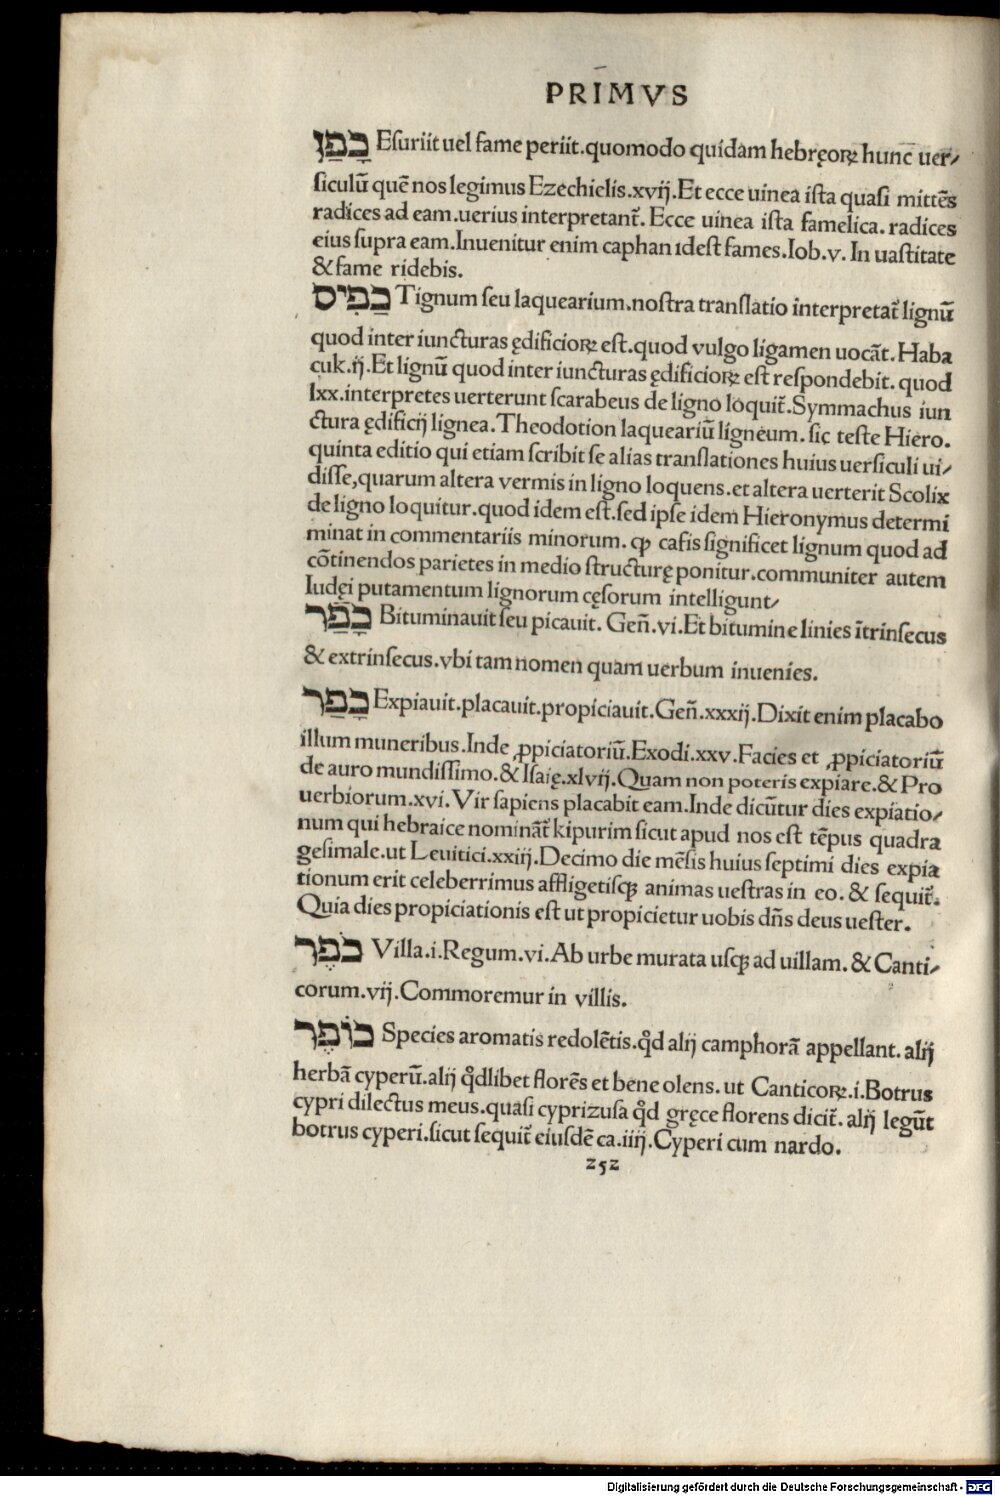 PRIMVS
כָּפַן Eſuriit uel fame periit.quomodo quidam hebręoꝝ hunc̄ uer⸗
ſiculū quē nos legimus Ezechielis.xvij.Et ecce uinea iſta quaſi mittēs
radices ad eam.uerius interpretant̄. Ecce uinea iſta famelica. radices
eius ſupra eam.Inuenitur enim caphan ideſt fames.Iob.v. In uaſtitate
&fame ridebis.
כָּפִיס Tignum ſeu laquearium.noſtra tranſlatio interpretat̄ lignū
quod inter iuncturas ędificioꝝ eſt.quod vulgo ligamen uocāt. Haba
cuk.ij.Et lignū quod inter iuncturas ędificioꝝ eſt reſpondebit. quod
lxx.interpretes uerterunt ſcarabeus de ligno loquit̄.Symmachus iun
ctura ędificij lignea.Theodotion laqueariū ligneum. ſic teſte Hiero.
quinta editio qui etiam ſcribit ſe alias tranſlationes huius uerſiculi ui⸗
diſſe,quarum altera vermis in ligno loquens.et altera uerterit Scolix
de ligno loquitur.quod idem eſt.ſed ipſe idem Hieronymus determi
minat in commentariis minorum. ꝙ cafis ſignificet lignum quod ad
cōtinendos parietes in medio ſtructurę ponitur.communiter autem
Iudęi putamentum lignorum cęſorum intelligunt⸗
כָּפַר Bituminauit ſeu picauit. Geñ.vi.Et bitumine linies ītrinſecus
& extrinſecus.vbi tam nomen quam uerbum inuenies.
כָּפַר Expiauit.placauit.propiciauit.Geñ.xxxij.Dixit enim placabo
illum muneribus.Inde ꝓpiciatoriū.Exodi.xxv.Facies et ꝓpiciatoriū
de auro mundiſſimo.& Iſaię.xlvij.Quam non poteris expiare.& Pro
uerbiorum.xvi.Vir ſapiens placabit eam.Inde dicūtur dies expiatio⸗
num qui hebraice nomināt̄ kipurim ſicut apud nos eſt tēpus quadra
geſimale.ut Leuitici.xxiij.Decimo die mēſis huius ſeptimi dies expia
tionum erit celeberrimus affligetiſqꝫ animas ueſtras in eo. & ſequit̄.
Quia dies propiciationis eſt ut propicietur uobis dñs deus ueſter.
כֹּפֶר Villa.i.Regum.vi.Ab urbe murata uſqꝫ ad uillam. & Canti⸗
corum.vij.Commoremur in villis.
כּוֹפֶר Species aromatis redolētis.qd̄ alij camphorā appellant. alij
herbā cyperū.alij qd̄libet florēs et bene olens. ut Canticoꝝ.i.Botrus
cypri dilectus meus.quaſi cyprizuſa qd̄ gręce florens dicit̄. alij legūt
botrus cyperi.ſicut ſequit̄ eiuſdē ca.iiij.Cyperi cum nardo.
252
Digitalisierung gefördert durch die Deutsche Forschungsgemeinschaft - DFG